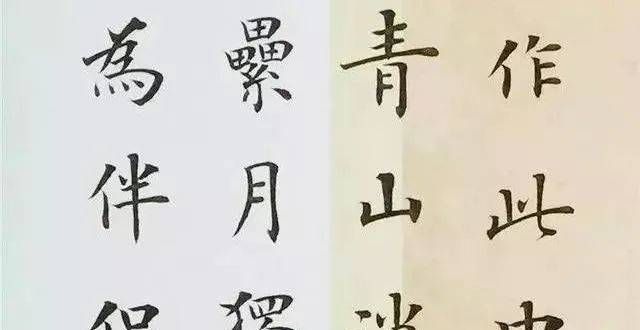 作此
青山
纍月
為伴